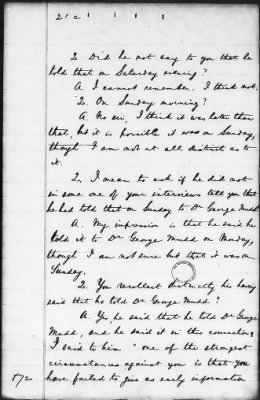 Q. Did he not say to you that he
told that on Saturday evening?
A. I cannot remember. I think not.
Q. On Sunday morning?
A. No sir, I think it was later than
that, but it is possible it was on Sunday,
though I am not at all distinct as to
it.
Q. I mean to ask if he did not
in some one of your interviews tell you that
he had told that on Sunday to Dr George Mudd?
A. My impression is that he said he
told it to Dr George Mudd on Monday,
though I am not sure but that it was on
Sunday.
Q. You recollect distinctly his having
said that he told Dr George Mudd?
A. Yes he said that he told Dr George
Mudd, and he said it in this connection;
I said to him "one of the strongest
circumstances against you is that you
have failed to give as early information